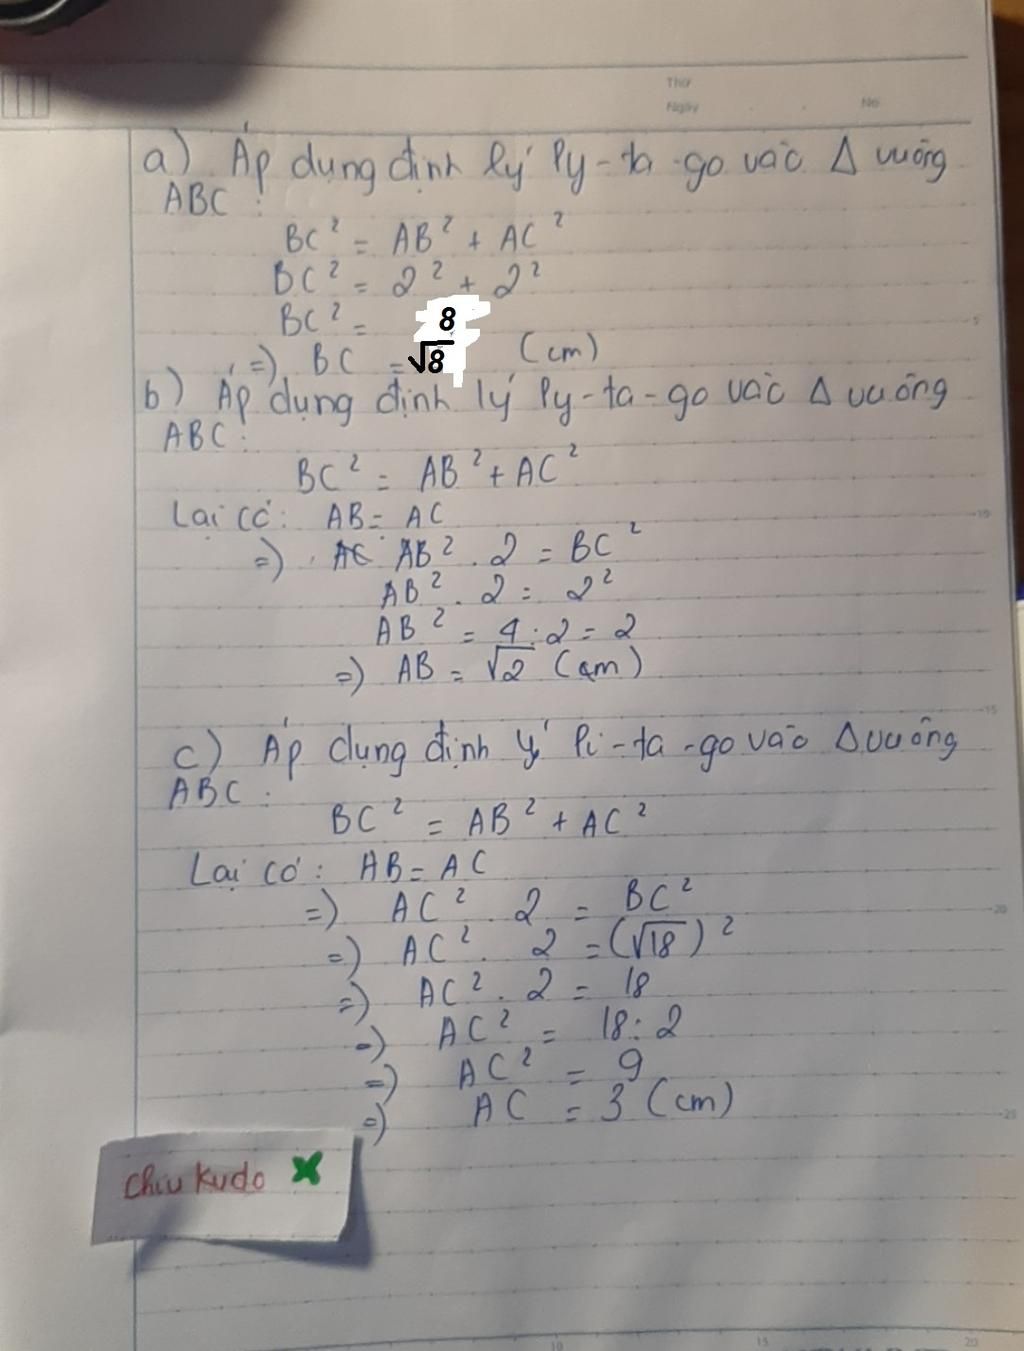 Thứ
Ngày . . No
a) Áp dụng định lý Py-ta-go vào Δ vuông
ABC :
BC² = AB² + AC²
BC² = 2² + 2²
BC² = 8
=) BC = √8 (cm)
b) Áp dụng định lý Py-ta-go vào Δ vuông
ABC :
BC² = AB² + AC²
Lại có: AB = AC
=) AC AB² . 2 = BC²
AB² . 2 = 2²
AB² = 4 : 2 = 2
=) AB = √2 (cm)
c) Áp dụng định lý Pi-ta-go vào Δ vuông
ABC :
BC² = AB² + AC²
Lại có: AB = AC
=) AC² . 2 = BC²
=) AC² . 2 = (√18)²
=) AC² . 2 = 18
=) AC² = 18 : 2
=) AC² = 9
=) AC = 3 (cm)
Chiu Kudo
5
10
15
20
25
10 15 20